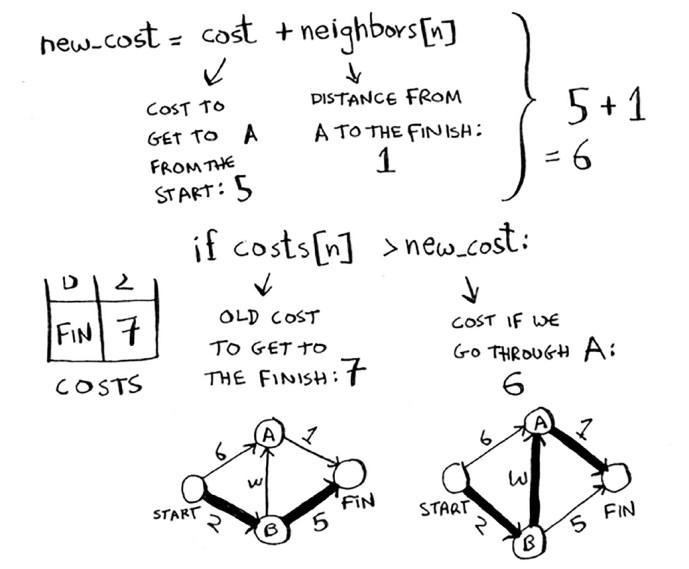 new_cost = cost + neighbors[n]
COST TO
GET TO A
FROM THE
START: 5
DISTANCE FROM
A TO THE FINISH:
1
5 + 1
= 6
if costs[n] > new_cost:
D 2
FIN 7
COSTS
OLD COST
TO GET TO
THE FINISH: 7
COST IF WE
GO THROUGH A:
6
A
6 1
W
START FIN
2 B 5
A
6 1
W
START FIN
2 B 5